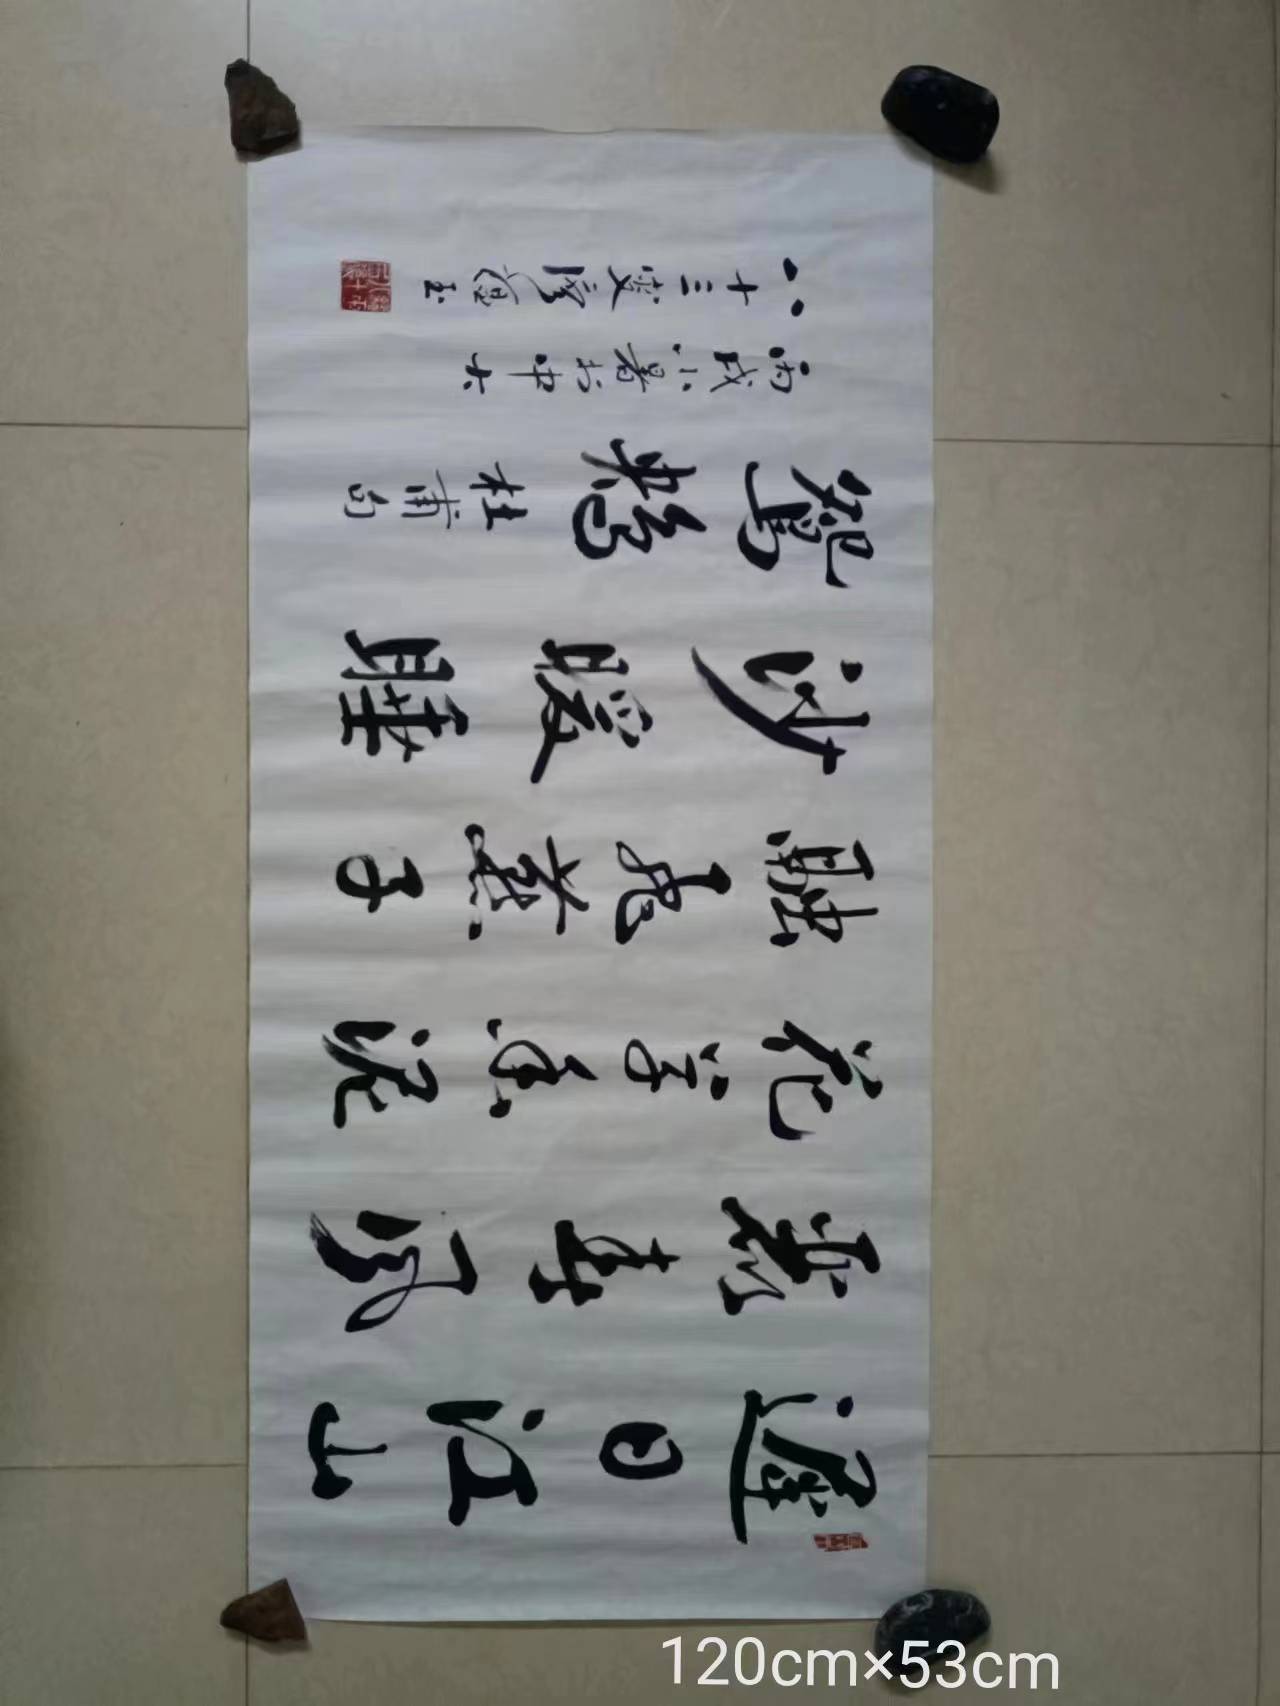 遲日江山
麗春風
花草香泥
融飛燕子
沙暖睡
鴛鴦 杜甫句
丙戌小暑於中大
八十三叟廖蘊玉
120cm×53cm